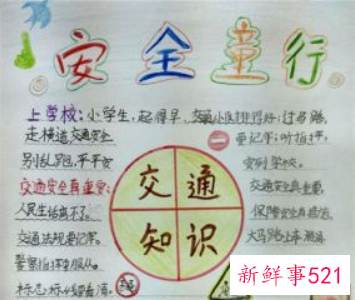 安全童行
上学校：小学生，起得早，交通小队排得好；过马路，
走横道，交通安全
要记牢；听指挥，
别乱跑，平平安
安到学校。
交通安全真重要：
交通安全真重要，
人民生活离不了。
保障安全有措施，
交通法规要记牢，
大马路上车
警察指挥要服从。
标志标线要看清，
交通
知识
新鲜事521